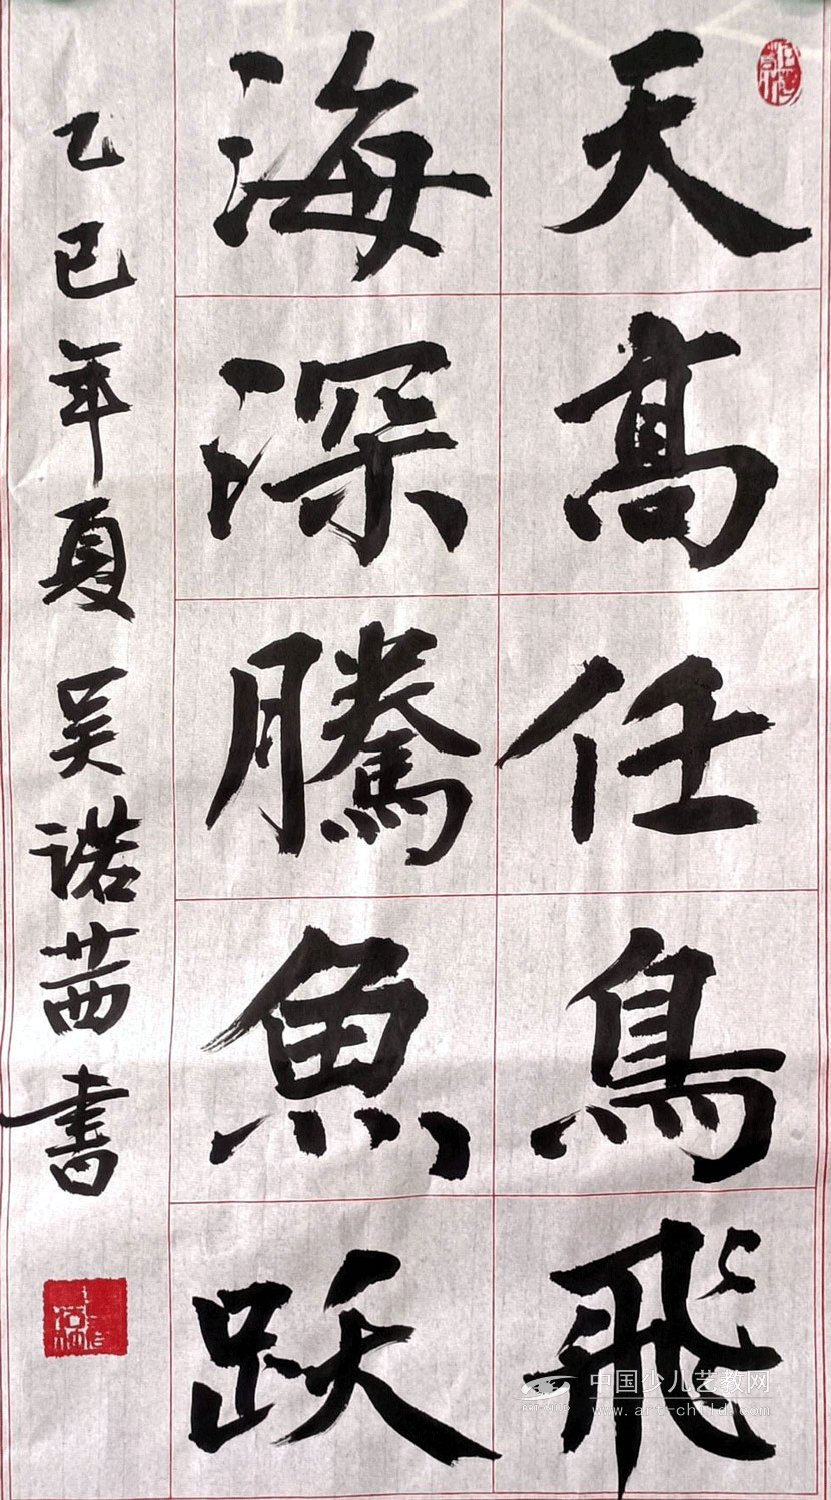 天高任鳥飛
海深騰魚跃
乙巳年夏吴诺茜书
中国少儿艺教网
www.art-child.com